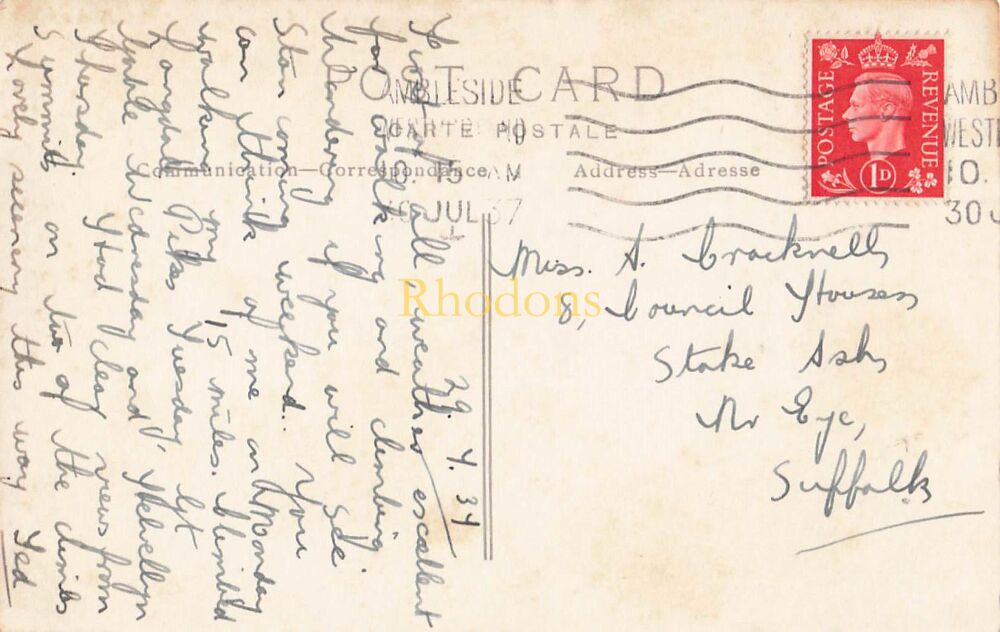 POST CARD
CARTE POSTALE
Communication—Correspondance
Address—Adresse
AMBLESIDE
10. 15 AM
30 JUL 37
AMB
WEST
10.
30 J
POSTAGE
REVENUE
1D
Rhodons
29. 7. 37
all weather excellent
for walking and climbing.
Wondering if you will see
Stan coming weekend. You
can think of me on Monday
walking my 15 miles. Climbed
Langdale Pikes Tuesday, Gt
Gable Wednesday and Helvellyn
Thursday. Had clear views from
Summit on two of the climbs
Lovely scenery this way Ted
Miss. A. Cracknell
8, Council Houses
Stoke Ash
Nr Eye,
Suffolk